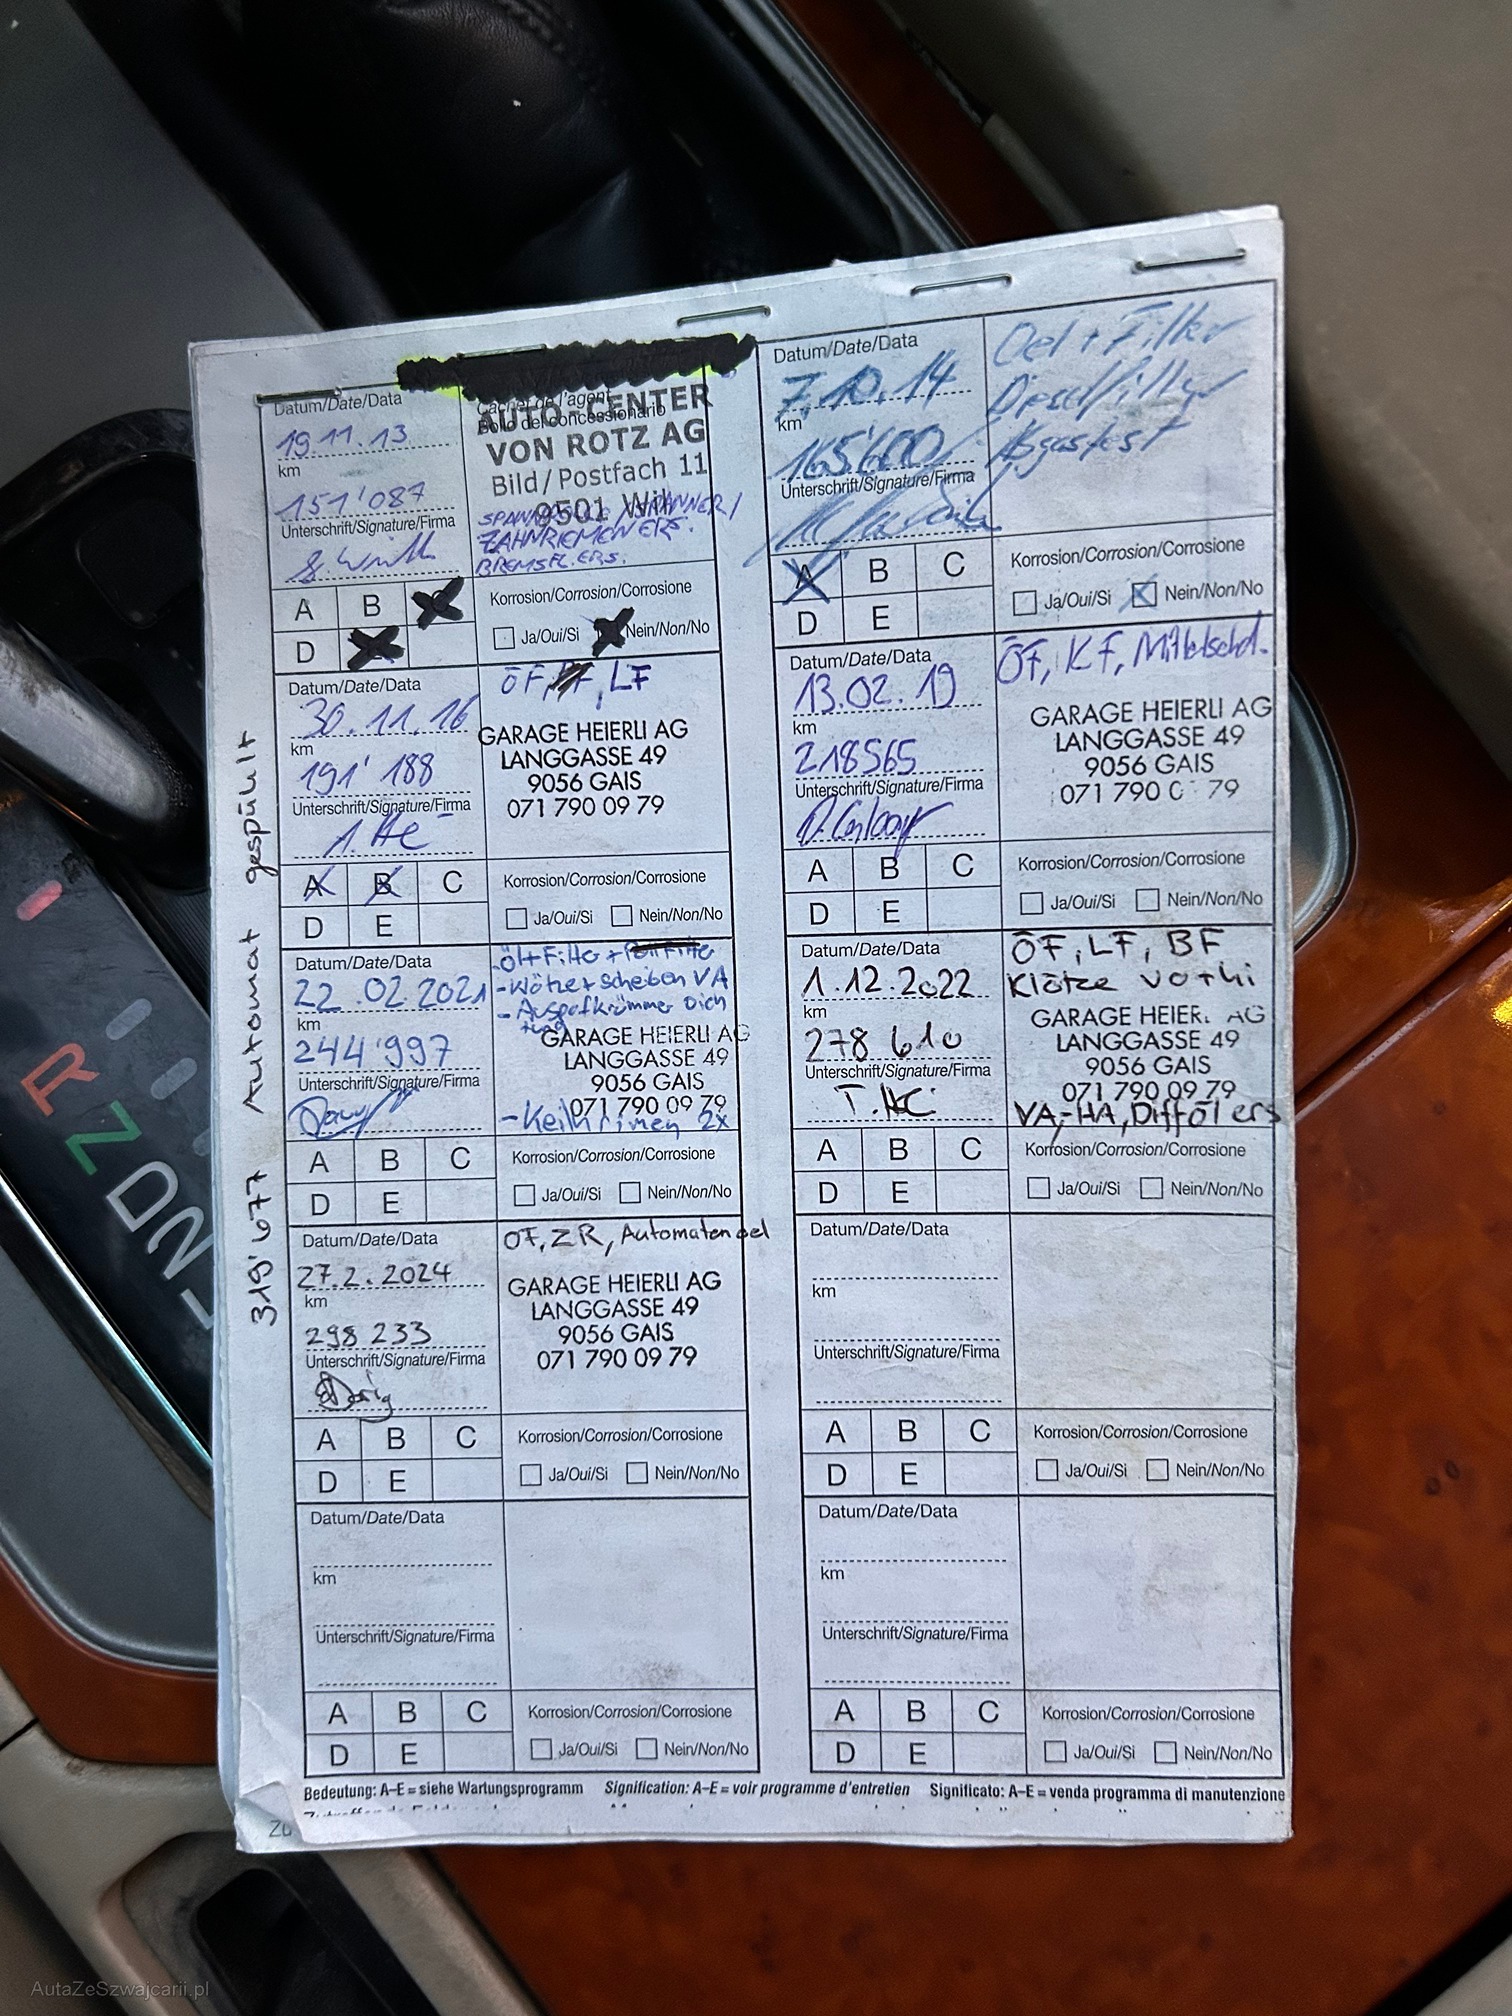 Datum/Date/Data
19.11.13
km
151'087
Unterschrift/Signature/Firma
Cachet de l'agent
Bollo del concessionario
AUTO-CENTER
VON ROTZ AG
Bild/Postfach 11
9501 Wil
SPANNROLLE/SPANNER/
ZAHNRIEMEN ERS.
BREMSFL. ERS.
A B
D
Korrosion/Corrosion/Corrosione
Ja/Oui/Si Nein/Non/No
Datum/Date/Data
7.10.14
km
165'600
Unterschrift/Signature/Firma
Oel + Filter
Dieselfilter
Abgastest
A B C
D E
Korrosion/Corrosion/Corrosione
Ja/Oui/Si Nein/Non/No
Datum/Date/Data
30.11.16
km
191'188
Unterschrift/Signature/Firma
ÖF, LF
GARAGE HEIERLI AG
LANGGASSE 49
9056 GAIS
071 790 09 79
A B C
D E
Korrosion/Corrosion/Corrosione
Ja/Oui/Si Nein/Non/No
Datum/Date/Data
13.02.19
km
218565
Unterschrift/Signature/Firma
ÖF, KF,
GARAGE HEIERLI AG
LANGGASSE 49
9056 GAIS
071 790 0 79
A B C
D E
Korrosion/Corrosion/Corrosione
Ja/Oui/Si Nein/Non/No
Datum/Date/Data
22.02.2021
km
244'997
Unterschrift/Signature/Firma
-Öl+Filter +
-Klötze+Scheiben VA
-Auspufkrümmer Dich
tung
GARAGE HEIERLI AG
LANGGASSE 49
9056 GAIS
071 790 09 79
-Keilriemen 2x
A B C
D E
Korrosion/Corrosion/Corrosione
Ja/Oui/Si Nein/Non/No
Datum/Date/Data
1.12.2022
km
278 610
Unterschrift/Signature/Firma
ÖF, LF, BF
Klötze vo+hi
GARAGE HEIER. AG
LANGGASSE 49
9056 GAIS
071 790 09 79
VA-HA, Diffölers
A B C
D E
Korrosion/Corrosion/Corrosione
Ja/Oui/Si Nein/Non/No
Datum/Date/Data
27.2.2024
km
298 233
Unterschrift/Signature/Firma
ÖF, ZR, Automatenoel
GARAGE HEIERLI AG
LANGGASSE 49
9056 GAIS
071 790 09 79
A B C
D E
Korrosion/Corrosion/Corrosione
Ja/Oui/Si Nein/Non/No
Datum/Date/Data
km
Unterschrift/Signature/Firma
A B C
D E
Korrosion/Corrosion/Corrosione
Ja/Oui/Si Nein/Non/No
Datum/Date/Data
km
Unterschrift/Signature/Firma
A B C
D E
Korrosion/Corrosion/Corrosione
Ja/Oui/Si Nein/Non/No
Datum/Date/Data
km
Unterschrift/Signature/Firma
A B C
D E
Korrosion/Corrosion/Corrosione
Ja/Oui/Si Nein/Non/No
Bedeutung: A–E = siehe Wartungsprogramm Signification: A–E = voir programme d'entretien Significato: A–E = venda programma di manutenzione
319'677 Automat gespült
R
N
D
AutaZeSzwajcarii.pl